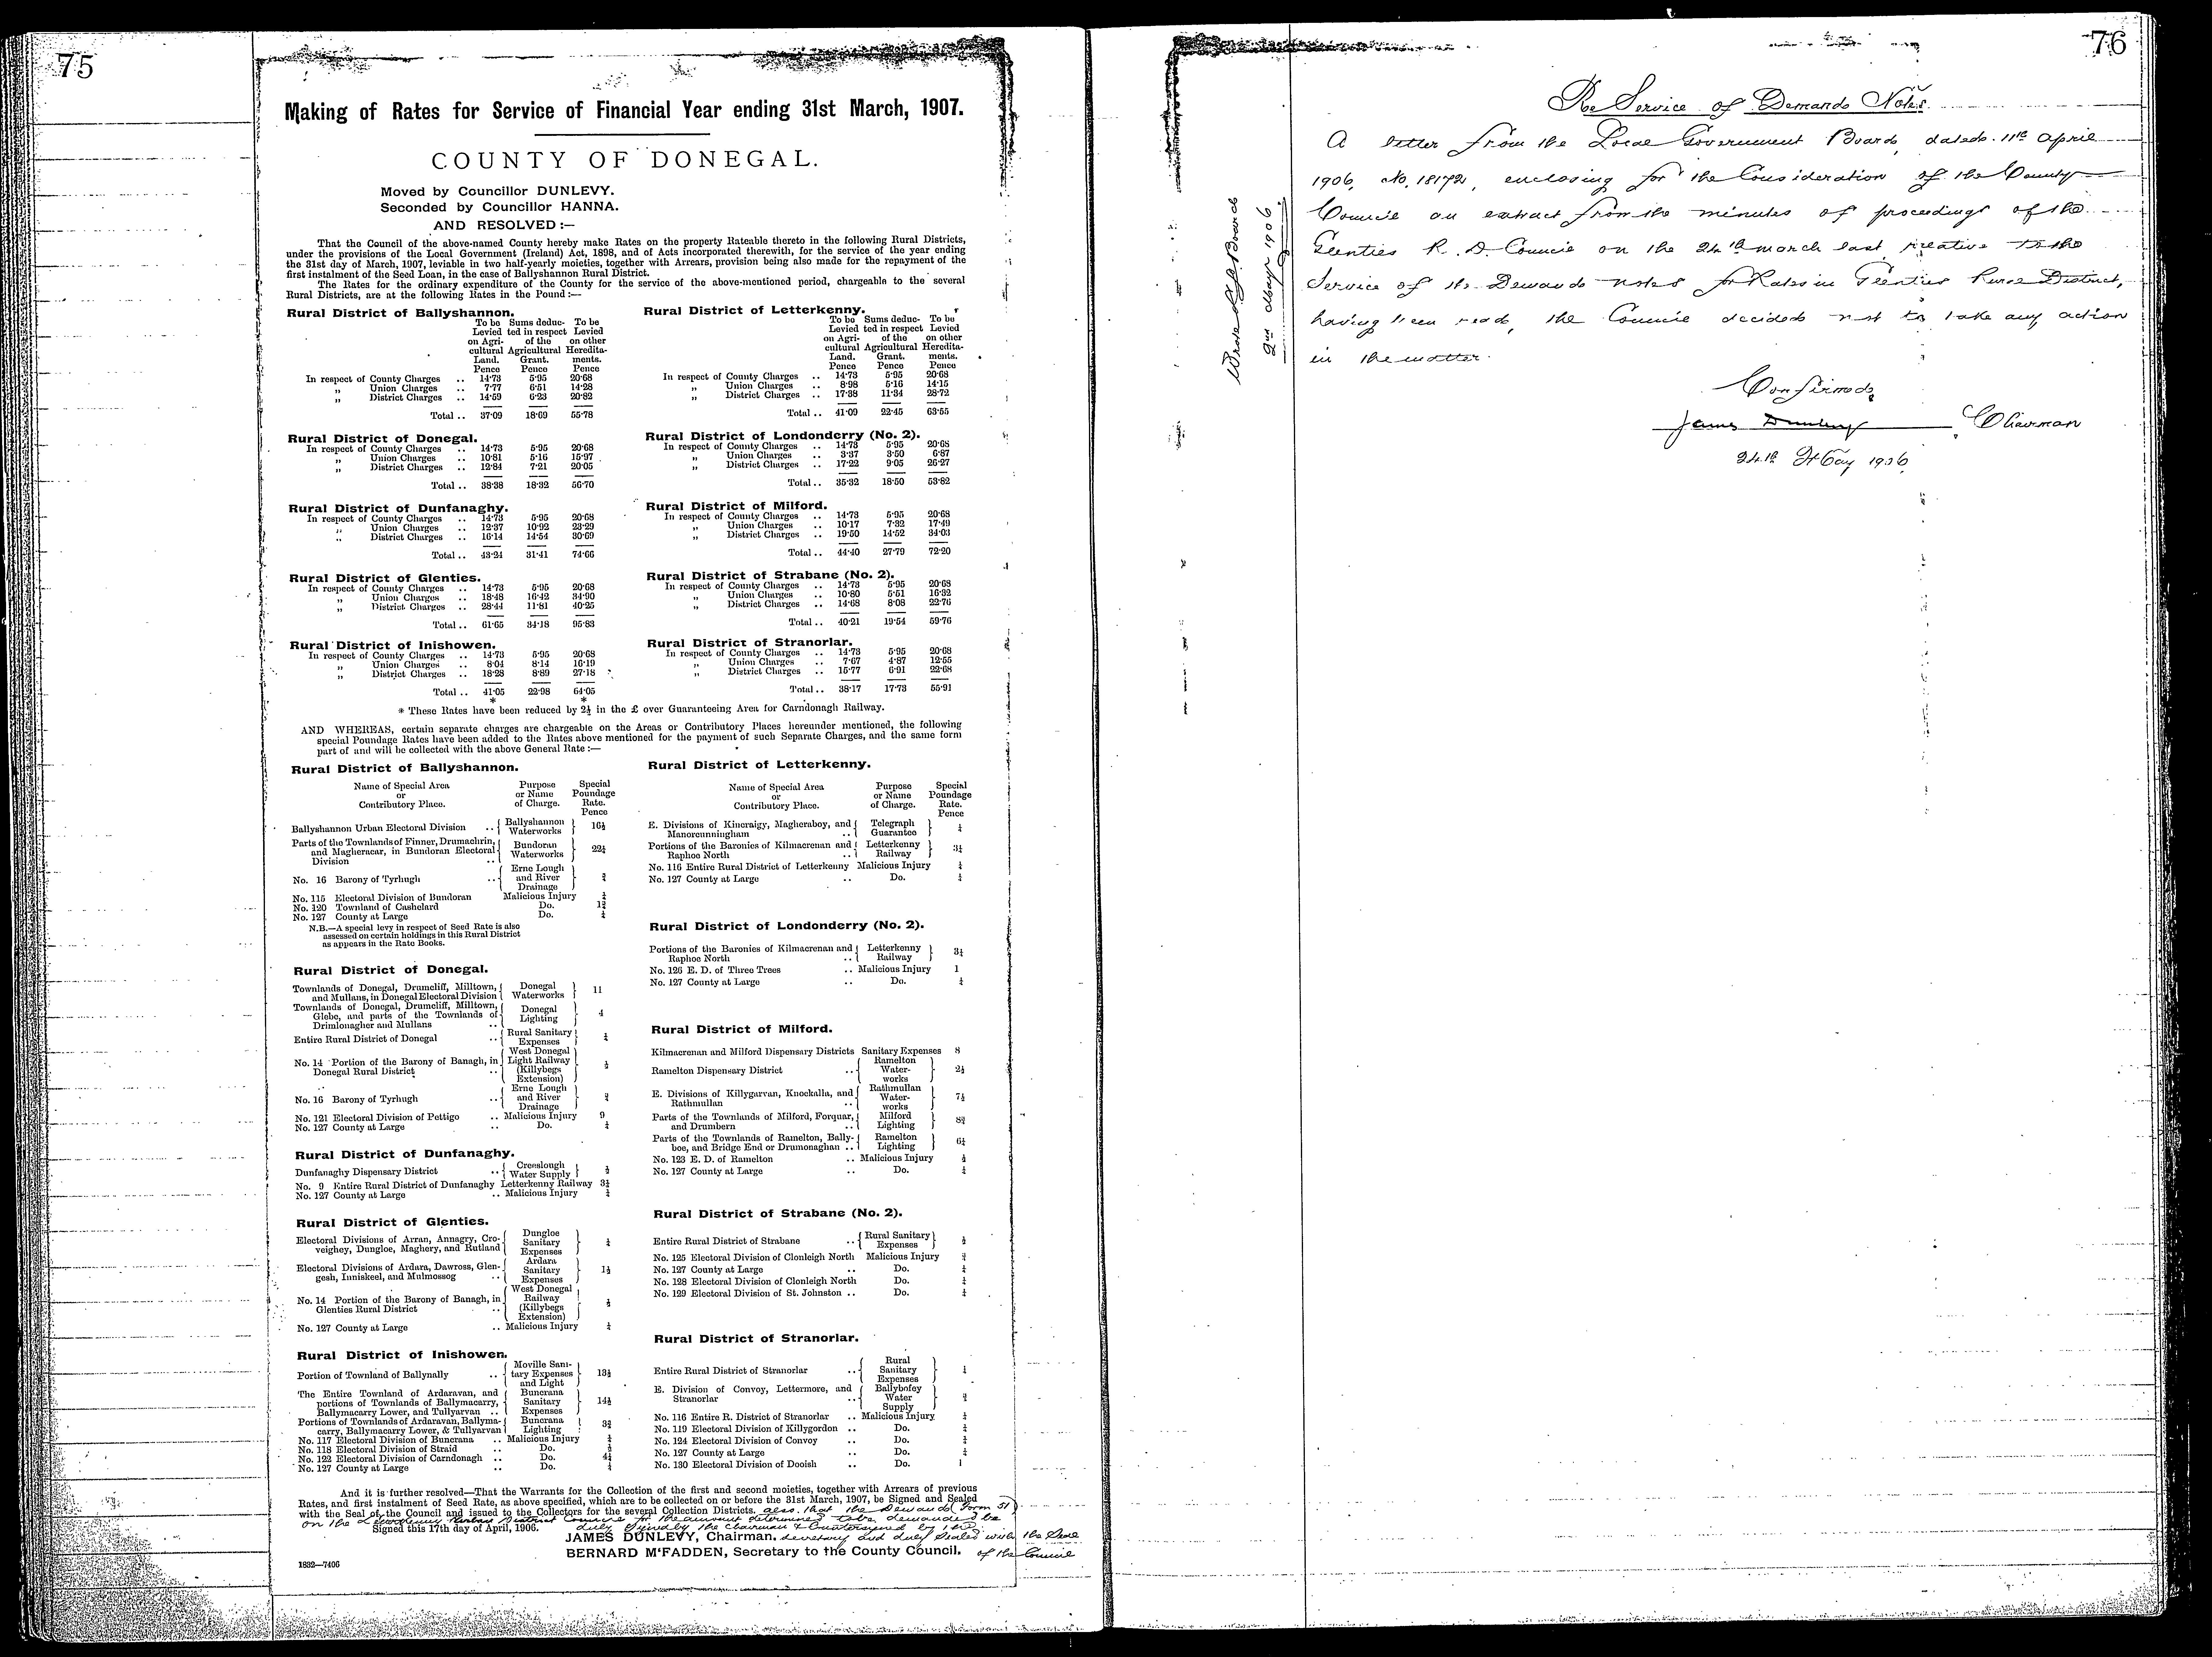 75
Making of Rates for Service of Financial Year ending 31st March, 1907.
COUNTY OF DONEGAL.
Moved by Councillor DUNLEVY.
Seconded by Councillor HANNA.
AND RESOLVED :—
That the Council of the above-named County hereby make Rates on the property Rateable thereto in the following Rural Districts,
under the provisions of the Local Government (Ireland) Act, 1898, and of Acts incorporated therewith, for the service of the year ending
the 31st day of March, 1907, leviable in two half-yearly moieties, together with Arrears, provision being also made for the repayment of the
first instalment of the Seed Loan, in the case of Ballyshannon Rural District.
The Rates for the ordinary expenditure of the County for the service of the above-mentioned period, chargeable to the several
Rural Districts, are at the following Rates in the Pound :—
Rural District of Ballyshannon.
To be Sums deduc- To be
Levied ted in respect Levied
on Agri- of the on other
cultural Agricultural Heredita-
Land. Grant. ments.
Pence Pence Pence
In respect of County Charges .. 14·73 5·95 20·68
„ Union Charges .. 7·77 6·51 14·28
„ District Charges .. 14·59 6·23 20·82
Total .. 37·09 18·69 55·78
Rural District of Donegal.
In respect of County Charges .. 14·73 5·95 20·68
„ Union Charges .. 10·81 5·16 15·97
„ District Charges .. 12·84 7·21 20·05
Total .. 38·38 18·32 56·70
Rural District of Dunfanaghy.
In respect of County Charges .. 14·73 5·95 20·68
„ Union Charges .. 12·37 10·92 23·29
„ District Charges .. 16·14 14·54 30·69
Total .. 43·24 31·41 74·66
Rural District of Glenties.
In respect of County Charges .. 14·73 5·95 20·68
„ Union Charges .. 18·48 16·42 34·90
„ District Charges .. 28·44 11·81 40·25
Total .. 61·65 34·18 95·83
Rural District of Inishowen.
In respect of County Charges .. 14·73 5·95 20·68
„ Union Charges .. 8·04 8·14 16·19
„ District Charges .. 18·28 8·89 27·18
Total .. 41·05 22·98 64·05
* *
Rural District of Letterkenny.
To be Sums deduc- To be
Levied ted in respect Levied
on Agri- of the on other
cultural Agricultural Heredita-
Land. Grant. ments.
Pence Pence Pence
In respect of County Charges .. 14·73 5·95 20·68
„ Union Charges .. 8·98 5·16 14·15
„ District Charges .. 17·38 11·34 28·72
Total .. 41·09 22·45 63·55
Rural District of Londonderry (No. 2).
In respect of County Charges .. 14·73 5·95 20·68
„ Union Charges .. 3·37 3·50 6·87
„ District Charges .. 17·22 9·05 26·27
Total .. 35·32 18·50 53·82
Rural District of Milford.
In respect of County Charges .. 14·73 5·95 20·68
„ Union Charges .. 10·17 7·32 17·49
„ District Charges .. 19·50 14·52 34·03
Total .. 44·40 27·79 72·20
Rural District of Strabane (No. 2).
In respect of County Charges .. 14·73 5·95 20·68
„ Union Charges .. 10·80 5·51 16·32
„ District Charges .. 14·68 8·08 22·76
Total .. 40·21 19·54 59·76
Rural District of Stranorlar.
In respect of County Charges .. 14·73 5·95 20·68
„ Union Charges .. 7·67 4·87 12·55
„ District Charges .. 15·77 6·91 22·68
Total .. 38·17 17·73 55·91
* These Rates have been reduced by 2½ in the £ over Guaranteeing Area for Carndonagh Railway.
AND WHEREAS, certain separate charges are chargeable on the Areas or Contributory Places hereunder mentioned, the following
special Poundage Rates have been added to the Rates above mentioned for the payment of such Separate Charges, and the same form
part of and will be collected with the above General Rate :—
Rural District of Ballyshannon.
Name of Special Area Purpose Special
or or Name Poundage
Contributory Place. of Charge. Rate.
Pence
Ballyshannon Urban Electoral Division .. Ballyshannon Waterworks 16½
Parts of the Townlands of Finner, Drumachrin,
and Magheracar, in Bundoran Electoral
Division .. Bundoran Waterworks 22¼
No. 16 Barony of Tyrhugh .. Erne Lough and River Drainage
No. 115 Electoral Division of Bundoran Malicious Injury
No. 120 Townland of Cashelard Do. 1¾
No. 127 County at Large Do.
N.B.—A special levy in respect of Seed Rate is also
assessed on certain holdings in this Rural District
as appears in the Rate Books.
Rural District of Donegal.
Townlands of Donegal, Drumcliff, Milltown,
and Mullans, in Donegal Electoral Division Donegal Waterworks 11
Townlands of Donegal, Drumcliff, Milltown,
Glebe, and parts of the Townlands of
Drimlonagher and Mullans .. Donegal Lighting 4
Entire Rural District of Donegal .. Rural Sanitary Expenses
No. 14 Portion of the Barony of Banagh, in
Donegal Rural District West Donegal Light Railway (Killybegs Extension)
No. 16 Barony of Tyrhugh .. Erne Lough and River Drainage
No. 121 Electoral Division of Pettigo .. Malicious Injury 9
No. 127 County at Large .. Do.
Rural District of Dunfanaghy.
Dunfanaghy Dispensary District .. Creeslough Water Supply
No. 9 Entire Rural District of Dunfanaghy Letterkenny Railway 3¼
No. 127 County at Large .. Malicious Injury
Rural District of Glenties.
Electoral Divisions of Arran, Annagry, Cro-
veighey, Dungloe, Maghery, and Rutland Dungloe Sanitary Expenses
Electoral Divisions of Ardara, Dawross, Glen-
gesh, Inniskeel, and Mulmossog .. Ardara Sanitary Expenses 1½
No. 14 Portion of the Barony of Banagh, in
Glenties Rural District .. West Donegal Railway (Killybegs Extension)
No. 127 County at Large .. Malicious Injury
Rural District of Inishowen.
Portion of Townland of Ballynally .. Moville Sani- tary Expenses and Light 13½
The Entire Townland of Ardaravan, and
portions of Townlands of Ballymacarry,
Ballymacarry Lower, and Tullyarvan .. Buncrana Sanitary Expenses 14½
Portions of Townlands of Ardaravan, Ballyma-
carry, Ballymacarry Lower, & Tullyarvan Buncrana Lighting 3¾
No. 117 Electoral Division of Buncrana .. Malicious Injury
No. 118 Electoral Division of Straid .. Do.
No. 122 Electoral Division of Carndonagh .. Do. 4¼
No. 127 County at Large .. Do.
Rural District of Letterkenny.
Name of Special Area Purpose Special
or or Name Poundage
Contributory Place. of Charge. Rate.
Pence
E. Divisions of Kincraigy, Magheraboy, and
Manorcunningham .. Telegraph Guarantee
Portions of the Baronies of Kilmacrenan and
Raphoe North .. Letterkenny Railway 3¼
No. 116 Entire Rural District of Letterkenny Malicious Injury
No. 127 County at Large .. Do.
Rural District of Londonderry (No. 2).
Portions of the Baronies of Kilmacrenan and
Raphoe North .. Letterkenny Railway 3¼
No. 126 E. D. of Three Trees .. Malicious Injury 1
No. 127 County at Large .. Do.
Rural District of Milford.
Kilmacrenan and Milford Dispensary Districts Sanitary Expenses 8
Ramelton Dispensary District .. Ramelton Water- works 2½
E. Divisions of Killygarvan, Knockalla, and
Rathmullan .. Rathmullan Water- works 7½
Parts of the Townlands of Milford, Forquar,
and Drumbern .. Milford Lighting 8¾
Parts of the Townlands of Ramelton, Bally-
boe, and Bridge End or Drumonaghan .. Ramelton Lighting 6¼
No. 123 E. D. of Ramelton .. Malicious Injury
No. 127 County at Large .. Do.
Rural District of Strabane (No. 2).
Entire Rural District of Strabane .. Rural Sanitary Expenses
No. 125 Electoral Division of Clonleigh North Malicious Injury
No. 127 County at Large .. Do.
No. 128 Electoral Division of Clonleigh North Do.
No. 129 Electoral Division of St. Johnston .. Do.
Rural District of Stranorlar.
Entire Rural District of Stranorlar .. Rural Sanitary Expenses
E. Division of Convoy, Lettermore, and
Stranorlar .. Ballybofey Water Supply
No. 116 Entire R. District of Stranorlar .. Malicious Injury
No. 119 Electoral Division of Killygordon .. Do.
No. 124 Electoral Division of Convoy .. Do.
No. 127 County at Large .. Do.
No. 130 Electoral Division of Dooish .. Do. 1
And it is further resolved—That the Warrants for the Collection of the first and second moieties, together with Arrears of previous
Rates, and first instalment of Seed Rate, as above specified, which are to be collected on or before the 31st March, 1907, be Signed and Sealed
with the Seal of the Council and issued to the Collectors for the several Collection Districts. also that the Demand (Form 51)
on the Letterkenny Urban District Council for the amount determined to be demanded be
duly signed by the Chairman & Countersigned by the
Signed this 17th day of April, 1906.
JAMES DUNLEVY, Chairman. Secretary and duly Sealed with the Seal
BERNARD M'FADDEN, Secretary to the County Council. of the Council
1832—7406
76
Re Service of Demand Notes
Wrote L G Board
2nd May 1906
A letter from the Local Government Board, dated 11th April
1906, No. 18172, enclosing for the Consideration of the County
Council an extract from the minutes of proceedings of the
Glenties R. D. Council on the 24th March last relative to the
Service of the Demand notes for Rates in Glenties Rural District,
having been read, the Council decided not to take any action
in the matter.
Confirmed,
James Dunlevy Chairman
24th May 1906